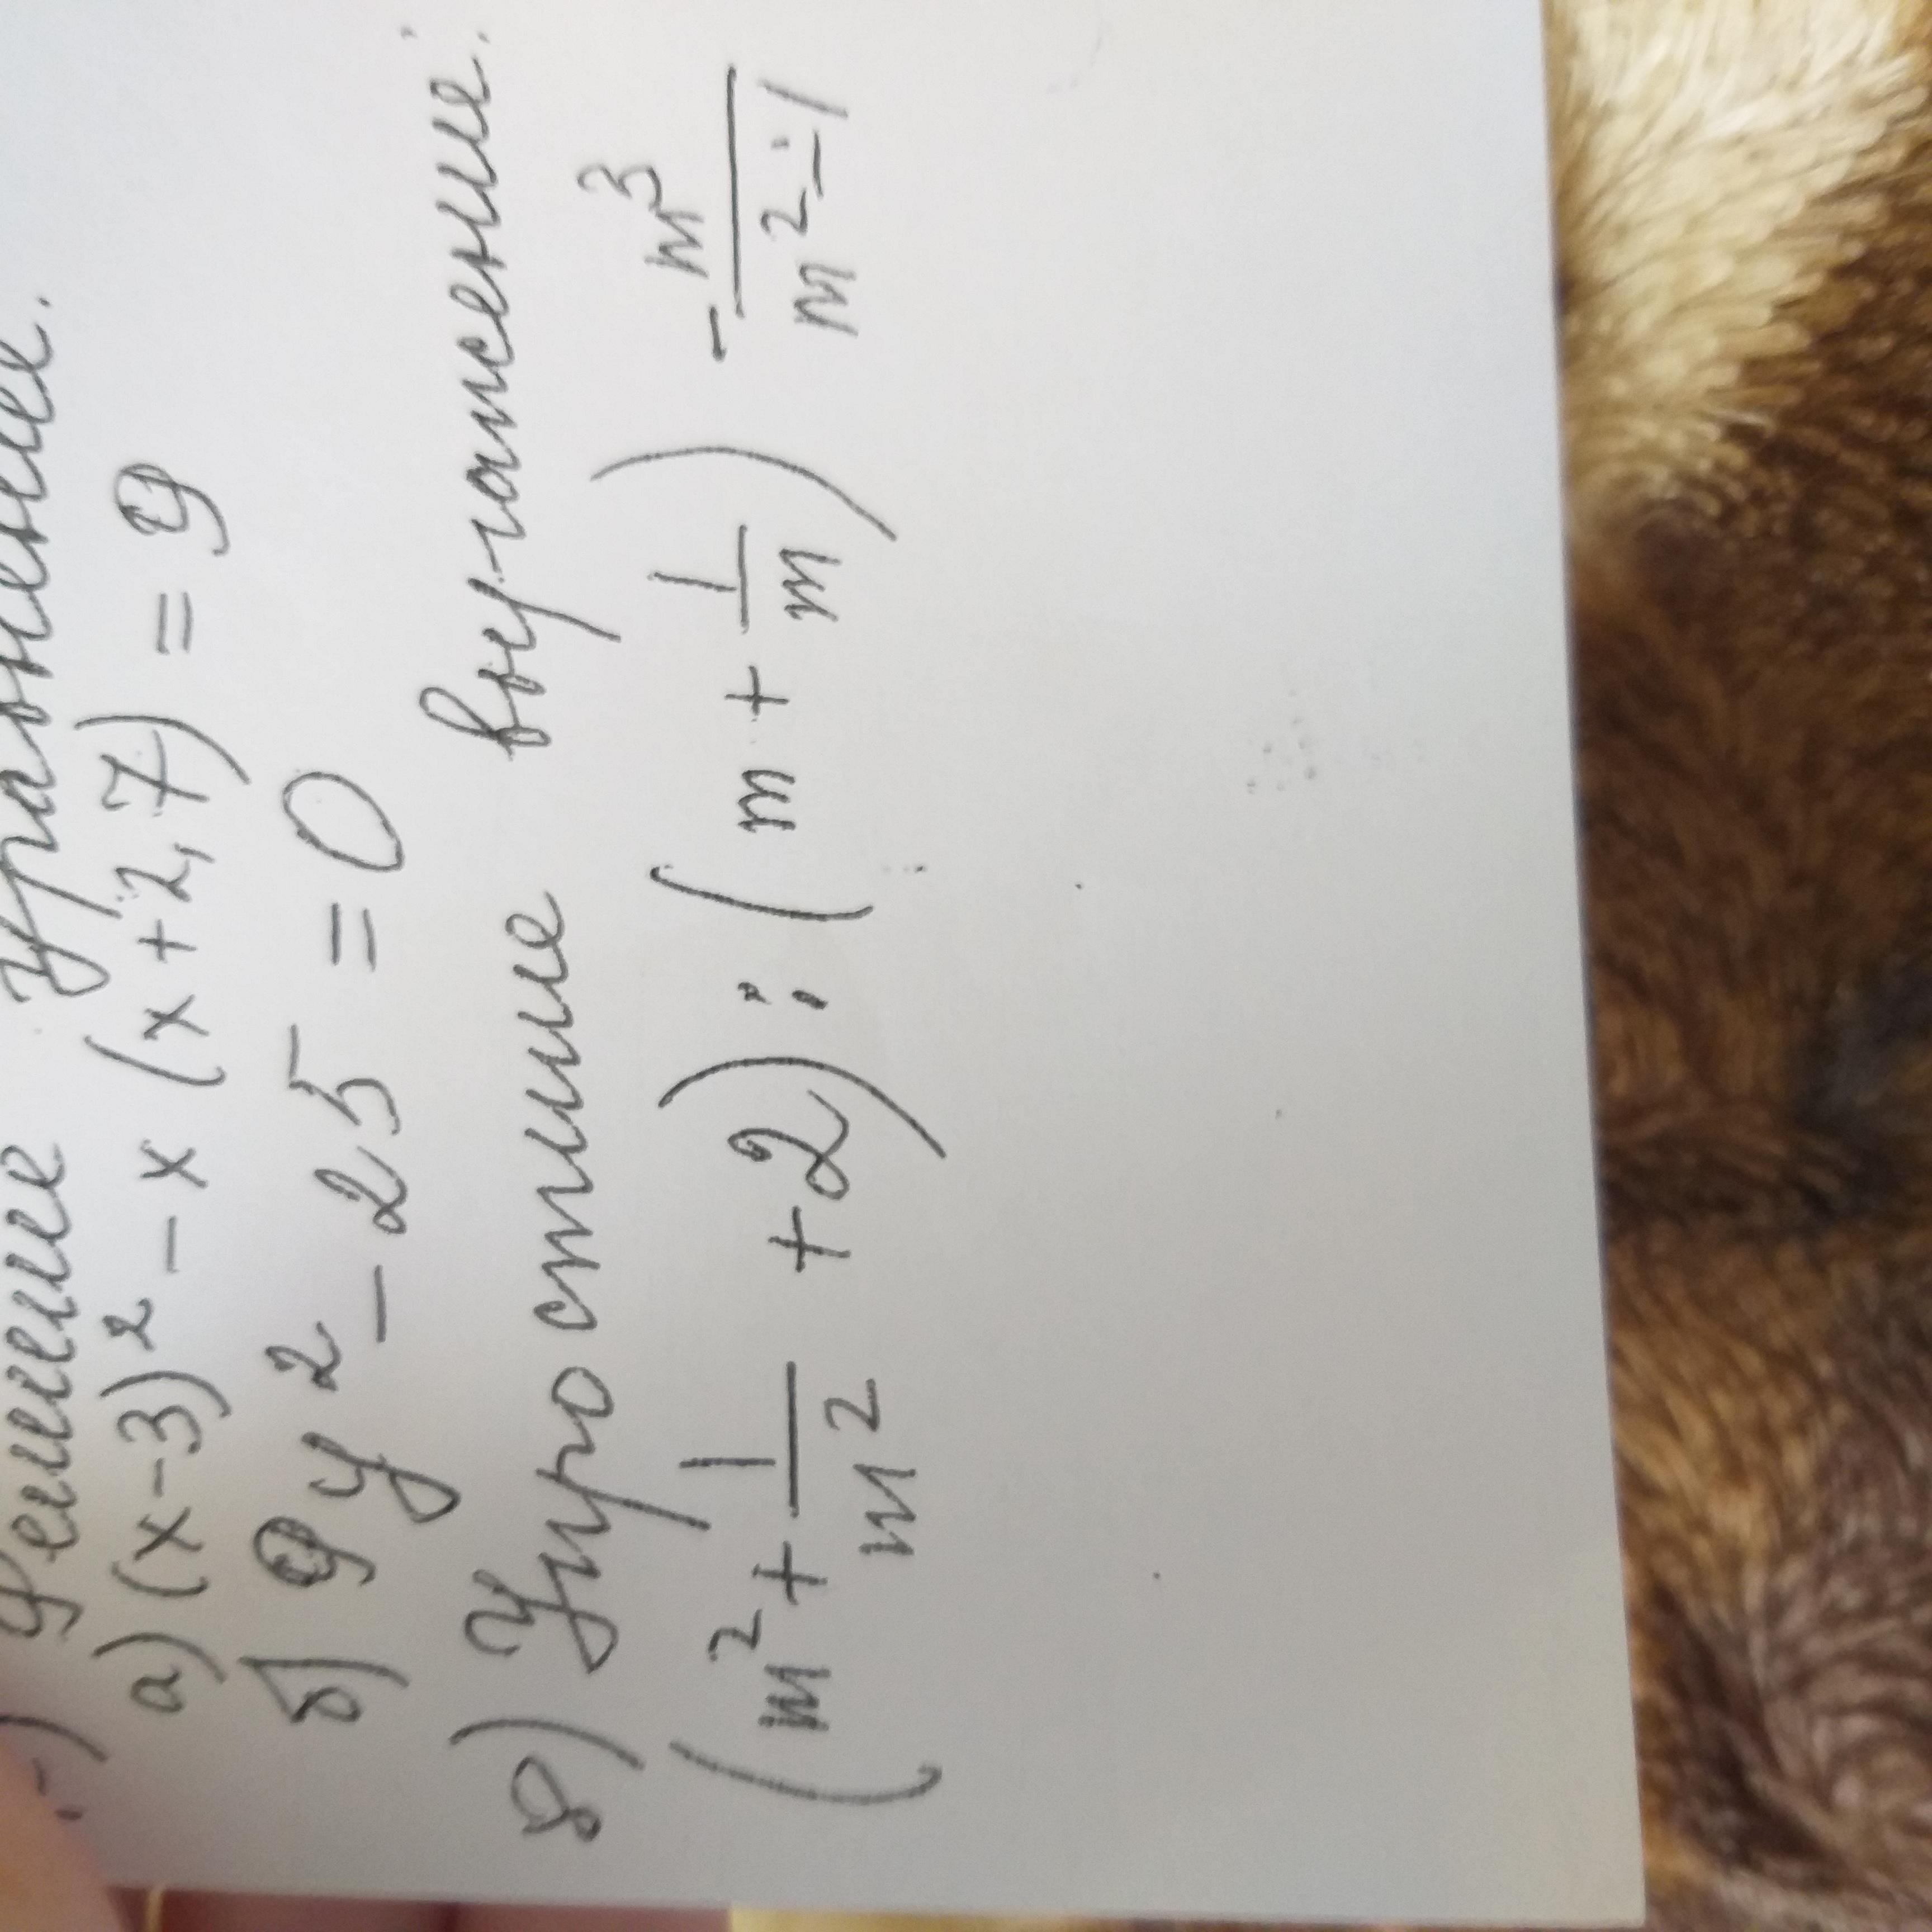 7) Решите уравнение.
а) (x-3)² - x (x+2,7) = 9
б) 9y² - 25 = 0
8) Упростите выражение:
(m² + 1/m² + 2) : (m + 1/m) - m³/(m² - 1)